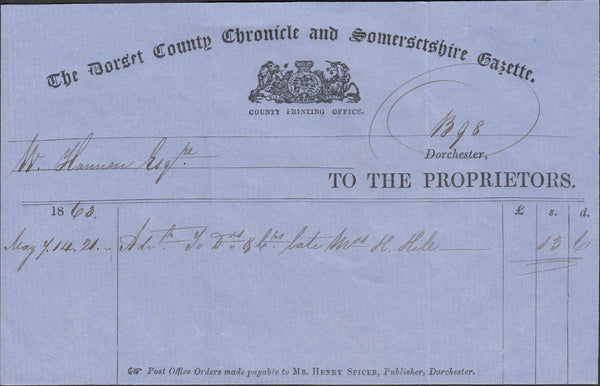 The Dorset County Chronicle and Somersetshire Gazette.
COUNTY PRINTING OFFICE.
B98
Dorchester,
W. Hannen Esqre
TO THE PROPRIETORS.
1863.
£ s. d.
May 7. 14. 21. Advts. To Drs & Crs late Mrs H. Hile 13 6
☞ Post Office Orders made payable to MR. HENRY SPICER, Publisher, Dorchester.